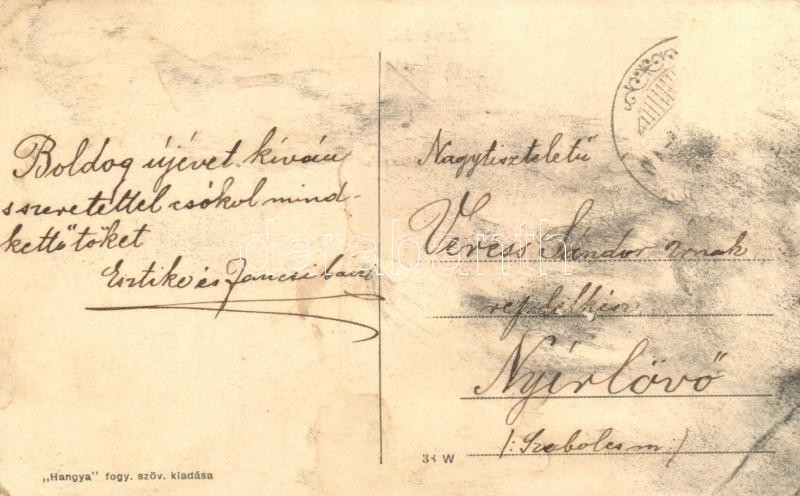 Boldog újévet kíván
s szeretettel csókol mind-
kettőtöket
Esztike és Jancsi bácsi
"Hangya" fogy. szöv. kiadása
Nagytiszteletű
Veress Sándor úrnak
ref. lelkész
Nyírlövő
(: Szabolcs m :)
38 W
darabanth